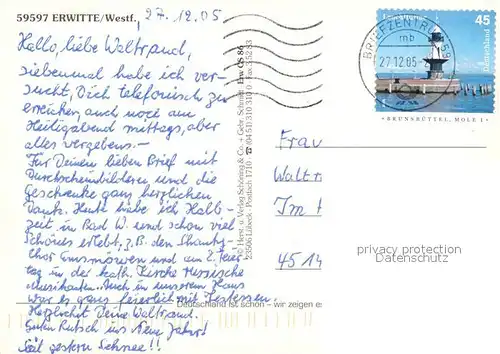 59597 ERWITTE/Westf.
27.12.05
Hallo, liebe Waltraud,
siebenmal habe ich ver-
sucht, Dich telefonisch zu
erreichen, auch noch am
Heiligabend mittags, aber
alles vergebens.-
Für Deinen lieben Brief mit
Durchscheinbildern und die
Geschenke ganz herzlichen
Dank. Heute habe ich Halb-
zeit in Bad W. und schon viel
Schönes erlebt, z.B. den Shanty-
chor und am 2. Feier
tag in der kath. Kirche russische
Musikanten. Auch in unserem Haus
war es ganz feierlich mit Festessen.
Herzlichst Deine Waltraud.
Guten Rutsch ins neue Jahr!
Seit gestern Schnee!!
Deutschland ist schön – wir zeigen es
© Herst. u. Verlag Schöning & Co. + Gebr. Schmidt
23506 Lübeck Postfach 1710
Erw OS 86
BRIEFZENTRUM 59
mb
27.12.05
Leuchttürme
45
Deutschland
BRUNSBÜTTEL, MOLE 1
Frau
Waltr
Im t
4514
privacy protection
Datenschutz